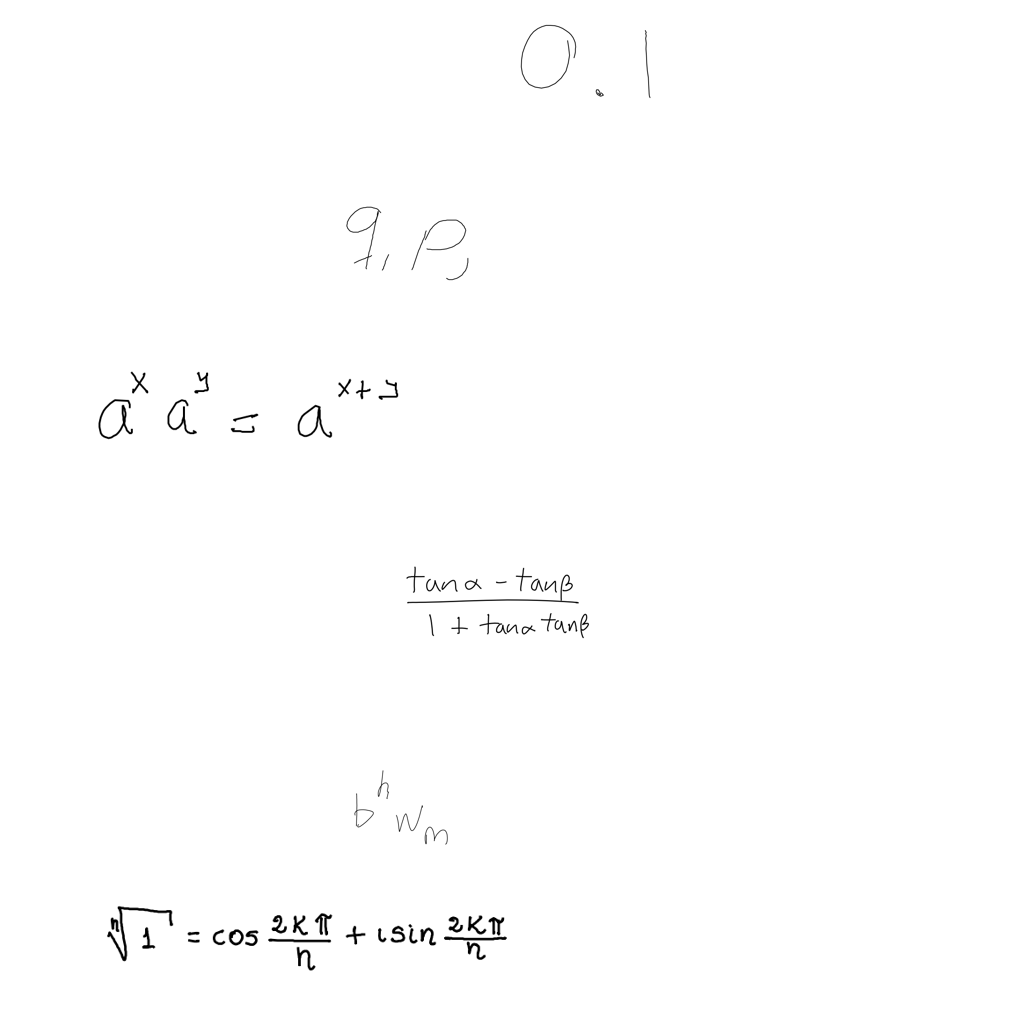 0.1
q_1 p_j
a^x a^y = a^{x+y}
\frac{tanα - tanβ}{1 + tanα tanβ}
b^n w_m
\sqrt[n]{1} = cos \frac{2kπ}{n} + i sin \frac{2kπ}{n}